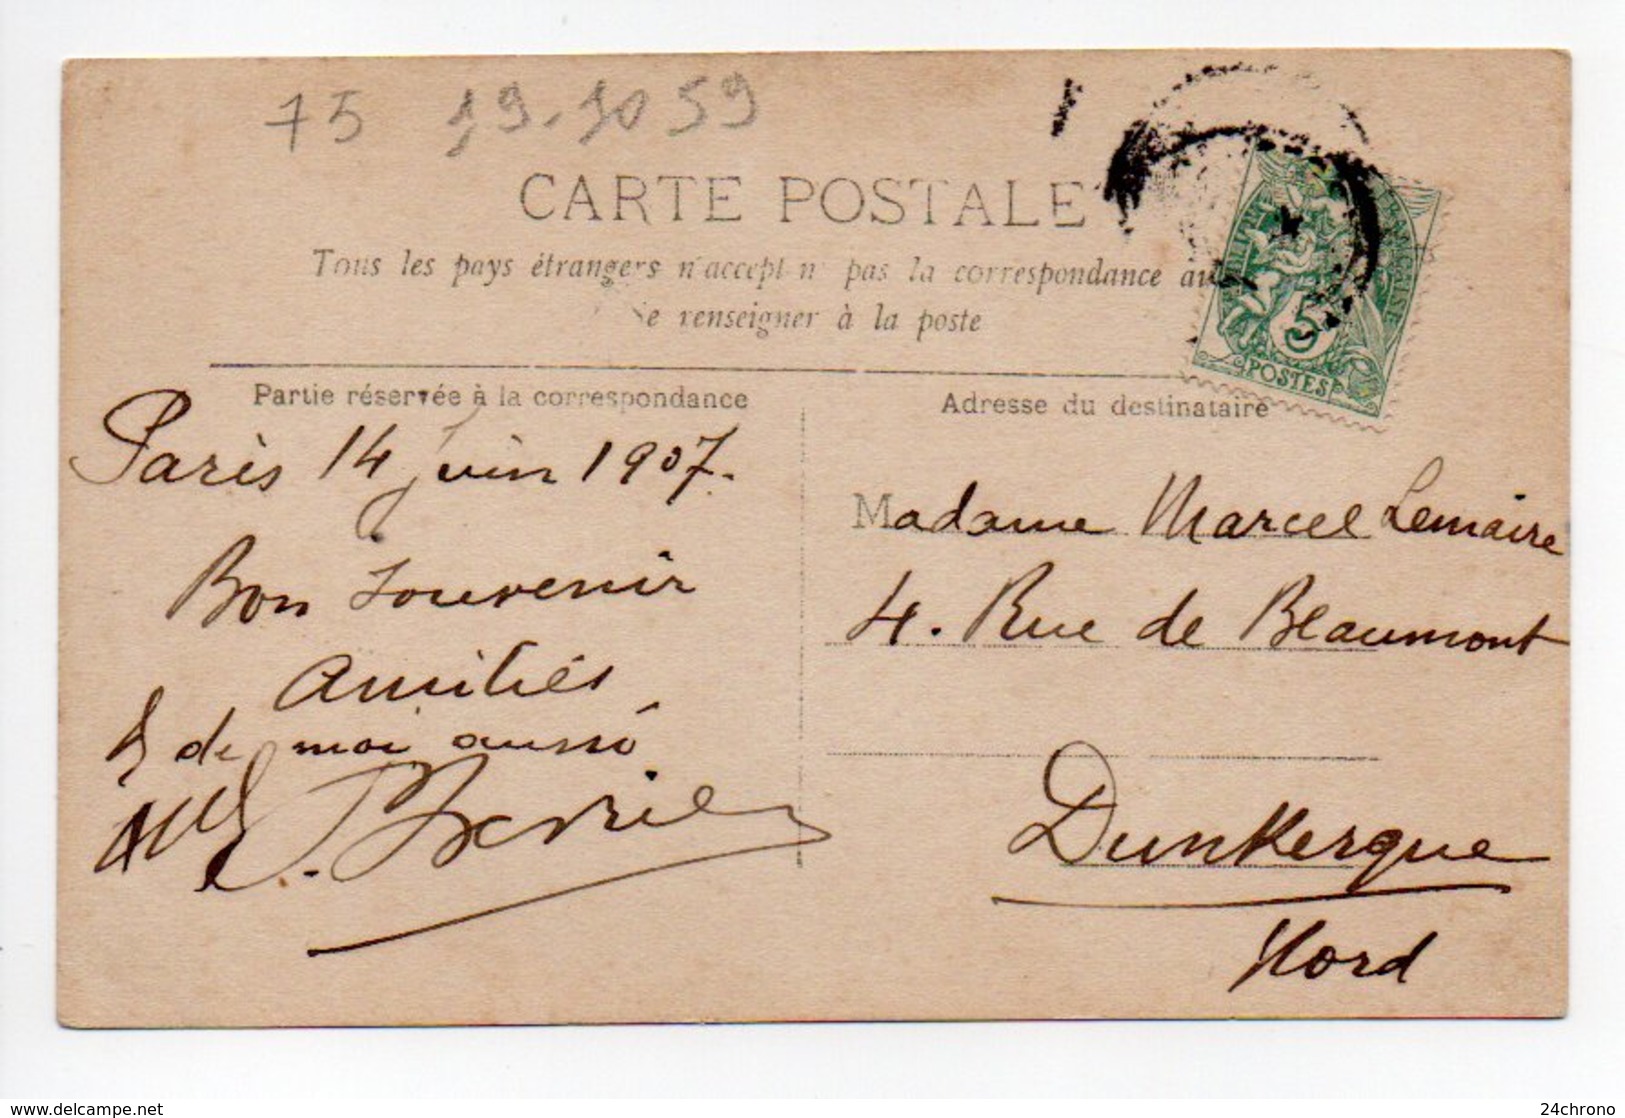 75 19.1059
CARTE POSTALE
Tous les pays étrangers n'accept n' pas la correspondance au
Se renseigner à la poste
Partie réservée à la correspondance
Adresse du destinataire
5
POSTES
Paris 14 juin 1907.
Bon souvenir
Amitiés
de moi aussi
Madame Marcel Lemaire
4. Rue de Beaumont
Dunkerque
Nord
delcampe.net
24chrono